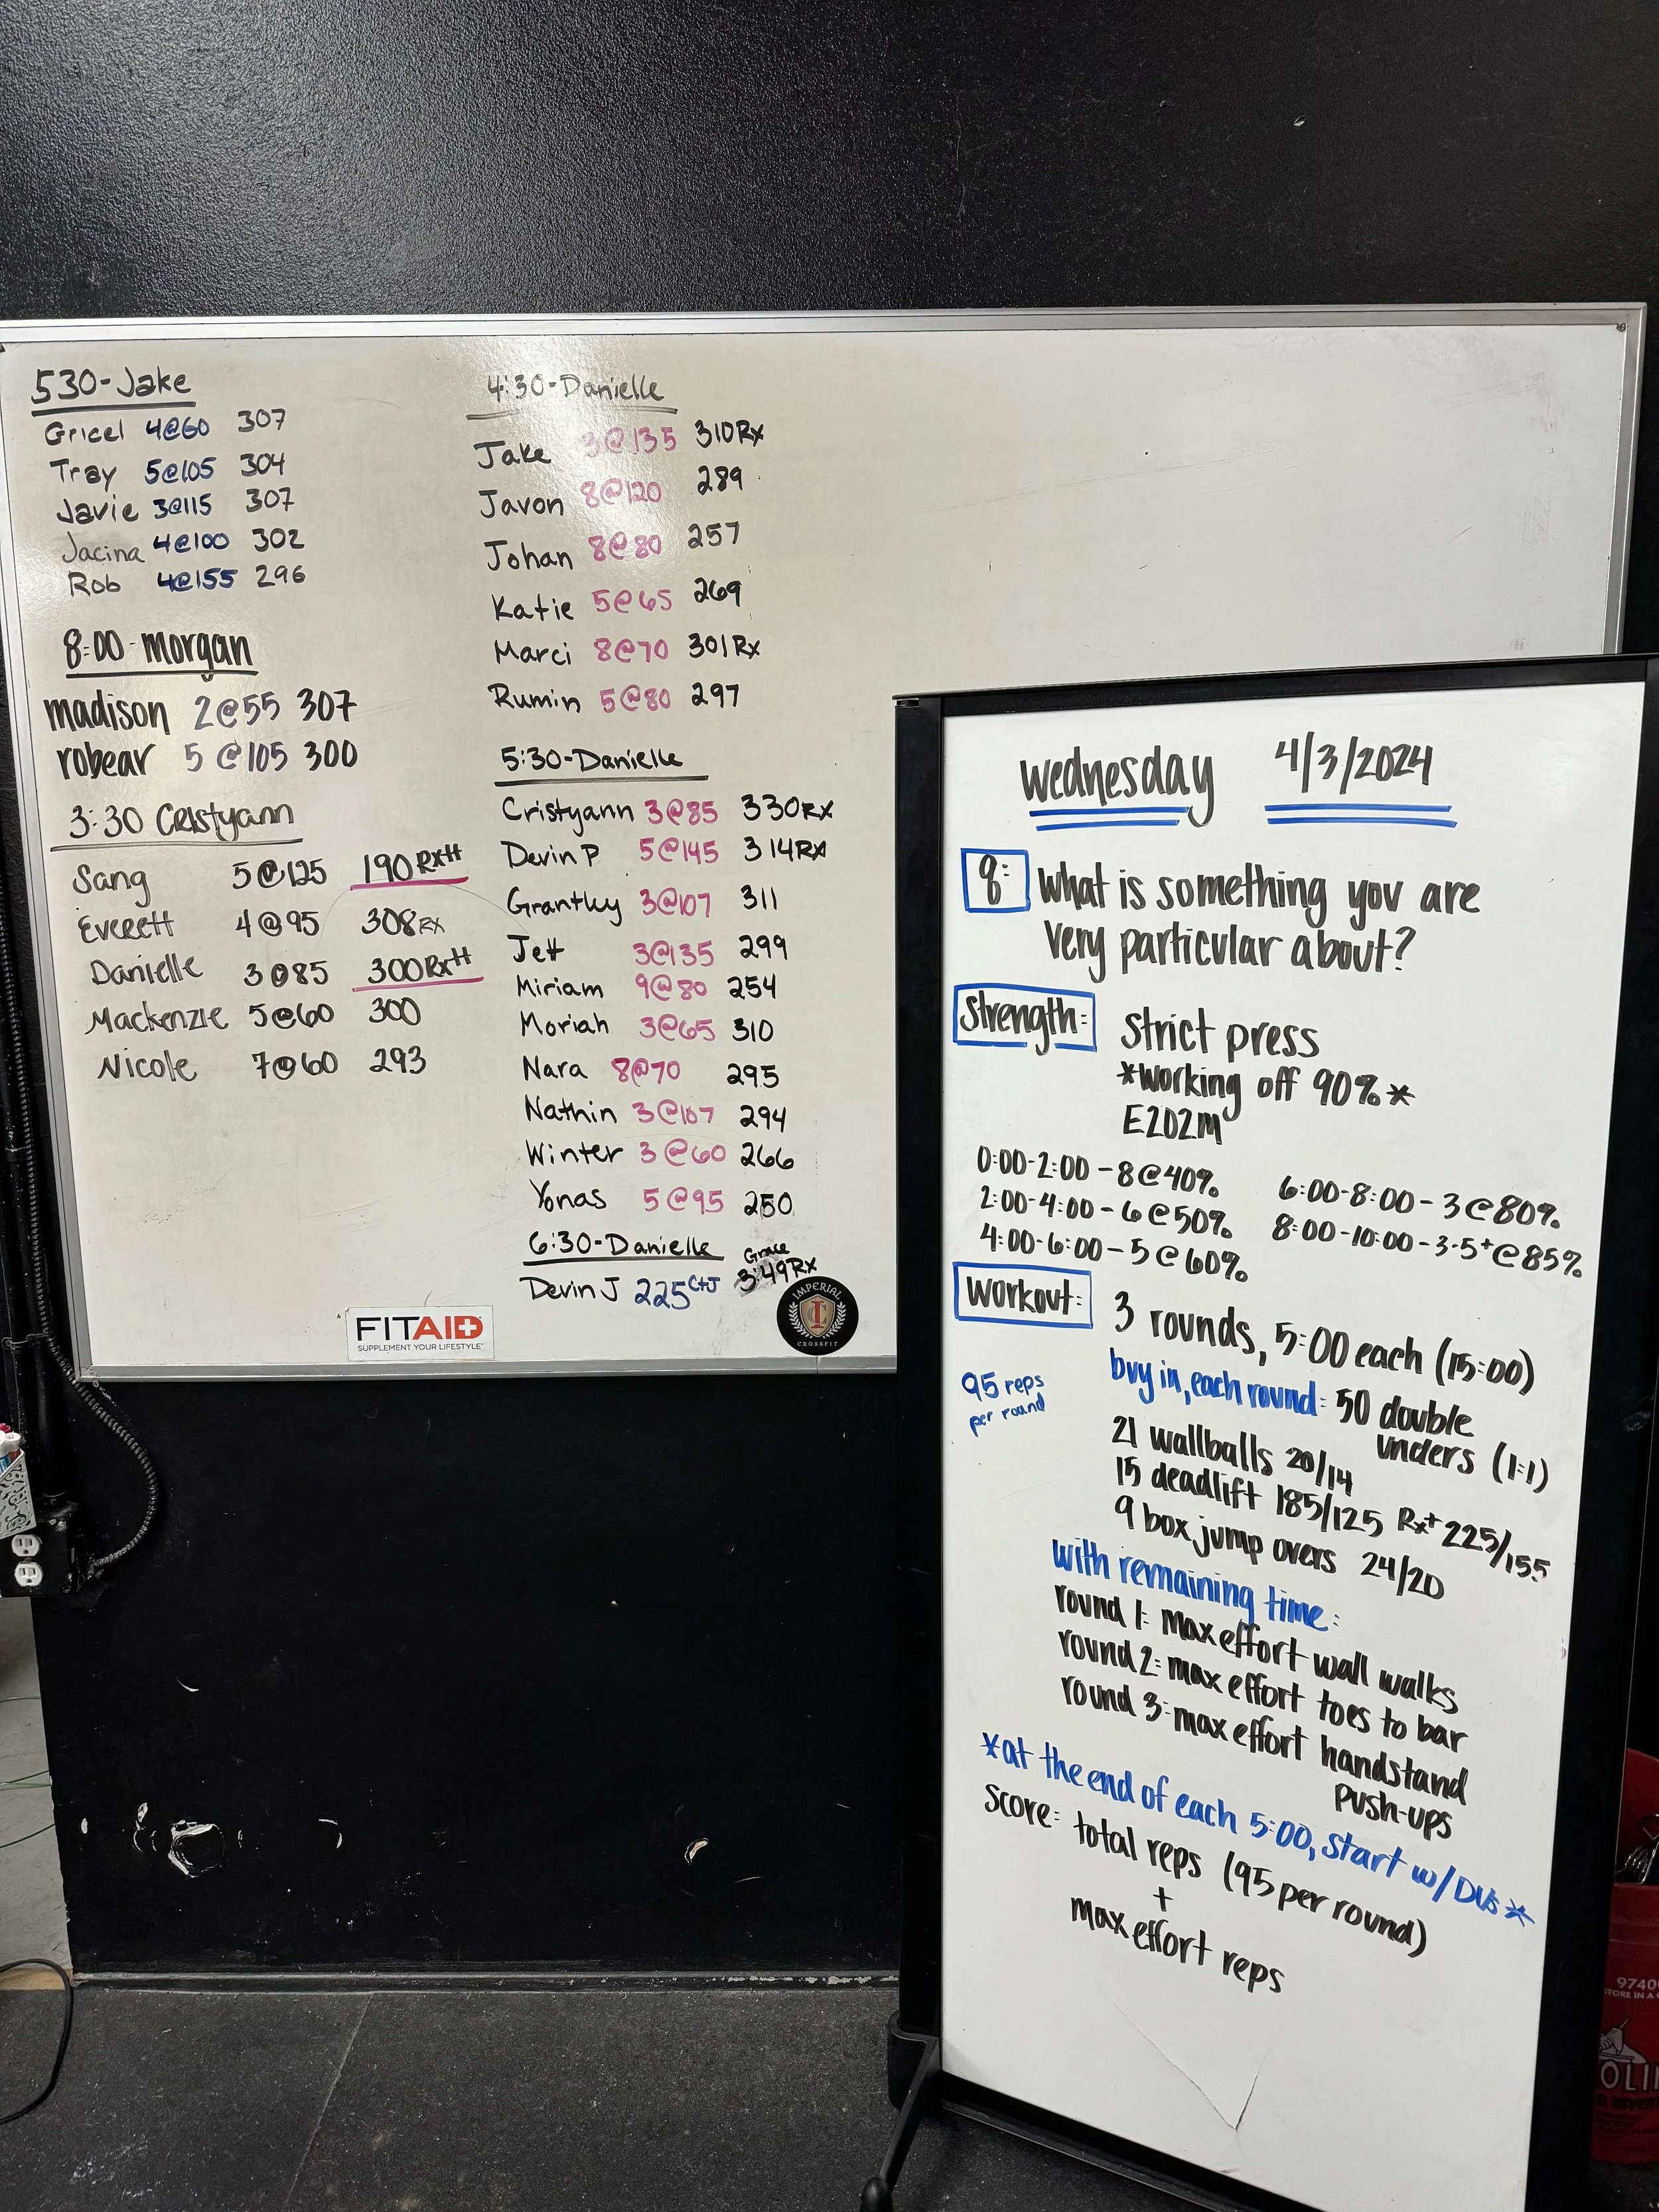 530-Jake
Gricel 4@60 307
Tray 5@105 304
Javie 3@115 307
Jacina 4@100 302
Rob 4@155 296
8:00-morgan
madison 2@55 307
robear 5@105 300
3:30 Cristyann
Sang 5@125 190 Rx++
Everett 4@95 308 RX
Danielle 3@85 300 Rx++
Mackenzie 5@60 300
Nicole 7@60 293
4:30-Danielle
Jake 3@135 310 Rx
Javon 8@120 289
Johan 8@80 257
Katie 5@65 269
Marci 8@70 301 Rx
Rumin 5@80 297
5:30-Danielle
Cristyann 3@85 330 RX
Devin P 5@145 314 RX
Grantky 3@107 311
Jett 3@135 299
Miriam 9@80 254
Moriah 3@65 310
Nara 8@70 295
Nathin 3@107 294
Winter 3@60 266
Yonas 5@95 250
6:30-Danielle
Grace
Devin J 225 C+J 3:49 RX
FITAID
SUPPLEMENT YOUR LIFESTYLE
IMPERIAL
CROSSFIT
Wednesday 4/3/2024
q: What is something you are
very particular about?
Strength: Strict press
*Working off 90%*
E2O2M
0:00-2:00 - 8@40%
2:00-4:00 - 6@50%
4:00-6:00 - 5@60%
6:00-8:00 - 3@80%
8:00-10:00 - 3-5+@85%
Workout: 3 rounds, 5:00 each (15:00)
95 reps
per round
buy in, each round: 50 double
unders (1:1)
21 wallballs 20/14
15 deadlift 185/125 Rx+ 225/155
9 box jump overs 24/20
with remaining time:
round 1: max effort wall walks
round 2: max effort toes to bar
round 3: max effort handstand
push-ups
*at the end of each 5:00, start w/ DUs*
Score: total reps (95 per round)
+
max effort reps